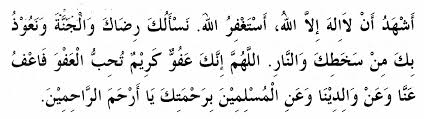 أَشْهَدُ أَنْ لاَالهَ إِلاَّ اللهُ، أَسْتَغْفِرُ اللهَ. نَسْأَلُكَ رِضَاكَ وَالْجَنَّةَ وَنَعُوْذُ
بِكَ مِنْ سَخَطِكَ وَالنَّارِ. اللَّهُمَّ إِنَّكَ عَفُوٌّ كَرِيْمٌ تُحِبُّ الْعَفْوَ فَاعْفُ
عَنَّا وَعَنْ وَالِدِيْنَا وَعَنِ الْمُسْلِمِيْنَ بِرَحْمَتِكَ يَا أَرْحَمَ الرَّاحِمِيْنَ.